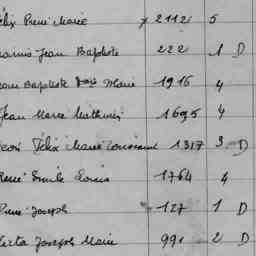 Félix Pierre Marie x 2112 5
Jean Baptiste 222 1 D
Jean Baptiste Marie 1916 4
Jean Marie Mathurin 1695 4
Félix Marie Toussaint 1317 3 D
René Emile Louis 1764 4
Pierre Joseph 127 1 D
Joseph Marie 991 2 D